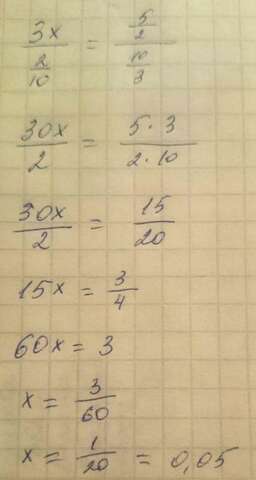 3x / (2/10) = (5/2) / (10/3)
30x/2 = 5·3 / 2·10
30x/2 = 15/20
15x = 3/4
60x = 3
x = 3/60
x = 1/20 = 0,05